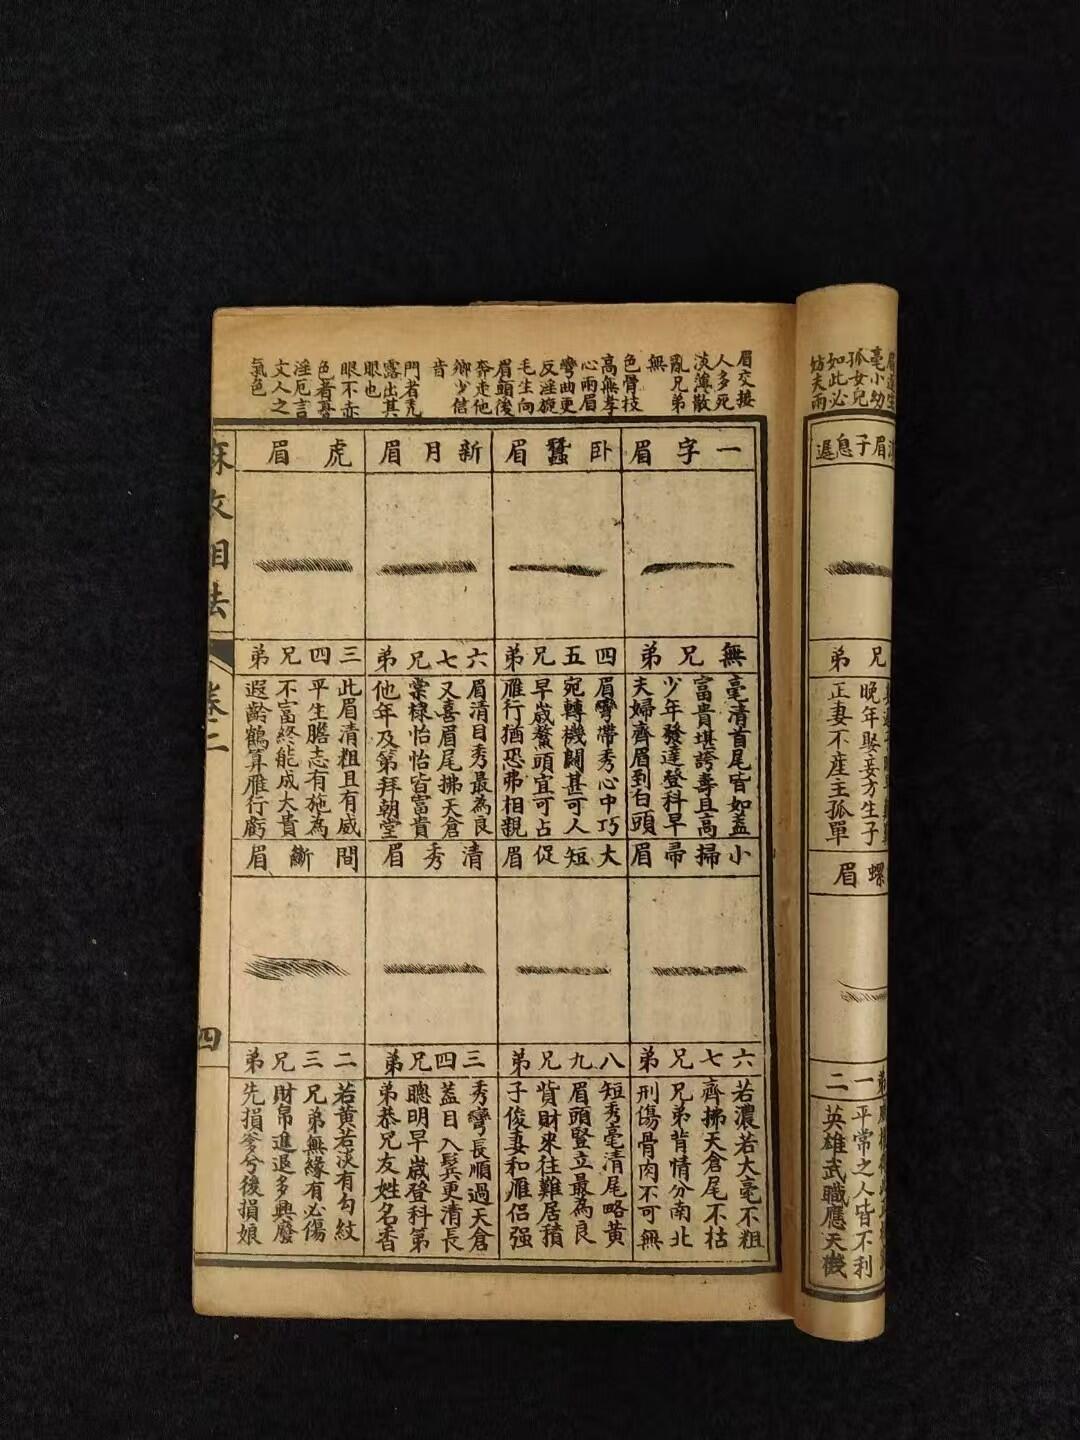 毫小幼
孤女兒
如此必
妨夫兩
眉子息遲
兄弟
晚年娶妾方生子
正妻不產主孤單
螺眉
弟一二
平常之人皆不利
英雄武職應天機
眉交接
人多死
淡薄散
亂兄弟
無
色骨枝
高無孝
心兩眉
彎曲更
反淫旋
毛生向
眉頭後
奔走他
鄉少信
音
門者禿
露出其
眼也
眼不亦
淫厄言
文人之
氣色
一字眉
無兄弟
毫清首尾皆如蓋
富貴堪誇壽且高
少年發達登科早
夫婦齊眉到白頭
臥蠶眉
四五兄弟
眉彎帶秀心中巧
宛轉機關甚可人
早歲鰲頭宜可占
雁行猶恐弗相親
新月眉
六七兄弟
眉清目秀最為良
又喜眉尾拂天倉
棠棣怡怡皆富貴
他年及第拜朝堂
虎眉
三四兄弟
此眉清粗且有威
平生膽志有施為
不富終能成大貴
遐齡鶴算雁行虧
小掃帚眉
六七兄弟
若濃若大毫不粗
齊拂天倉尾不枯
兄弟背情分南北
刑傷骨肉不可無
大短促眉
八九兄弟
短秀毫清尾略黃
眉頭豎立最為良
貲財來往難居積
子俊妻和雁侶强
清秀眉
三四兄弟
秀彎長順過天倉
蓋目入鬓更清長
聰明早歲登科第
弟恭兄友姓名香
間斷眉
二三兄弟
若黃若淡有勾紋
兄弟無緣有必傷
財帛進退多興廢
先損爹兮後損娘
麻衣相法
卷二
四